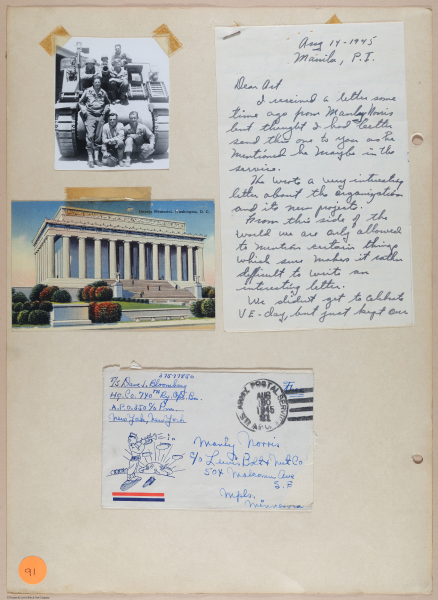 Aug 14-1945
Manila, P.I.
Dear Art
I received a letter some
time ago from Manley Norris
but thought I had better
send this one to you as he
mentioned he might be in the
service.
He wrote a very interesting
letter about the organization
and its new project.
From this side of the
world we are only allowed
to mention certain things
which sure makes it rather
difficult to write an
interesting letter.
We didn't get to celebrate
V E-day, but just kept our
Lincoln Memorial, Washington, D. C.
37577850
T/5 Dave L. Bloomberg
Hq. Co. 740th Ry. Ops. Bn.
A.P.O. 350 c/o P.m.
New York, New York
Free
ARMY POSTAL SERVICE
AUG
1945
A.P.O.
Manly Norris
c/o Lewis Bolt & Nut Co
504 Malcolm Ave
S.E
Mpls.
Minnesota
91